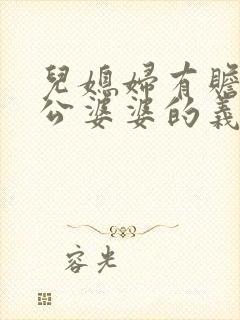 兒媳婦有贍
公婆婆的義
容光